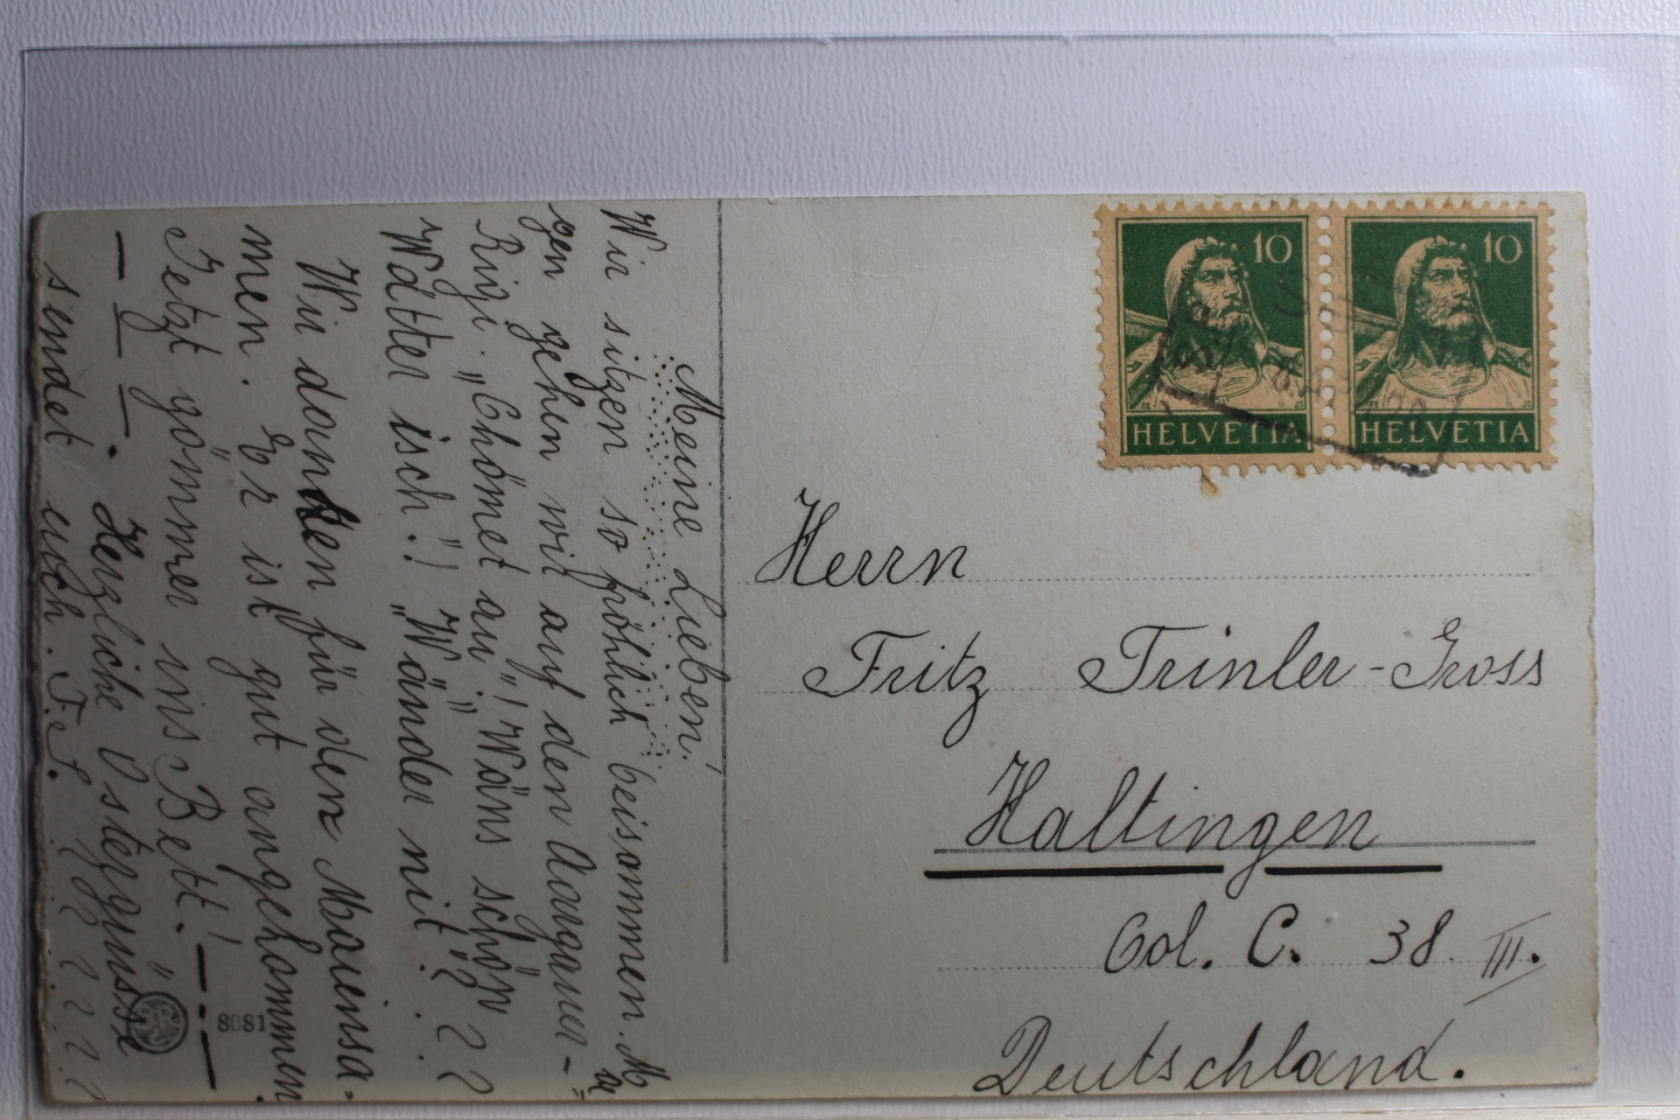 Meine Lieben!
Wir sitzen so fröhlich beisammen. Mor
gen gehen wir auf den Aargauer-
Rigi. „Chömet au"! „Wäns schön
Wätter isch"! „Wänder nit"? ? ?
Wir danken für den Maiensa-
men. Er ist gut angekommen
Jetzt gömmer ins Bett!
Herzliche Ostergrüsse
sendet euch. F. S.
8081
10
10
HELVETIA
HELVETIA
Herrn
Fritz Trinler-Gross
Haltingen
Col. C. 38 III.
Deutschland.